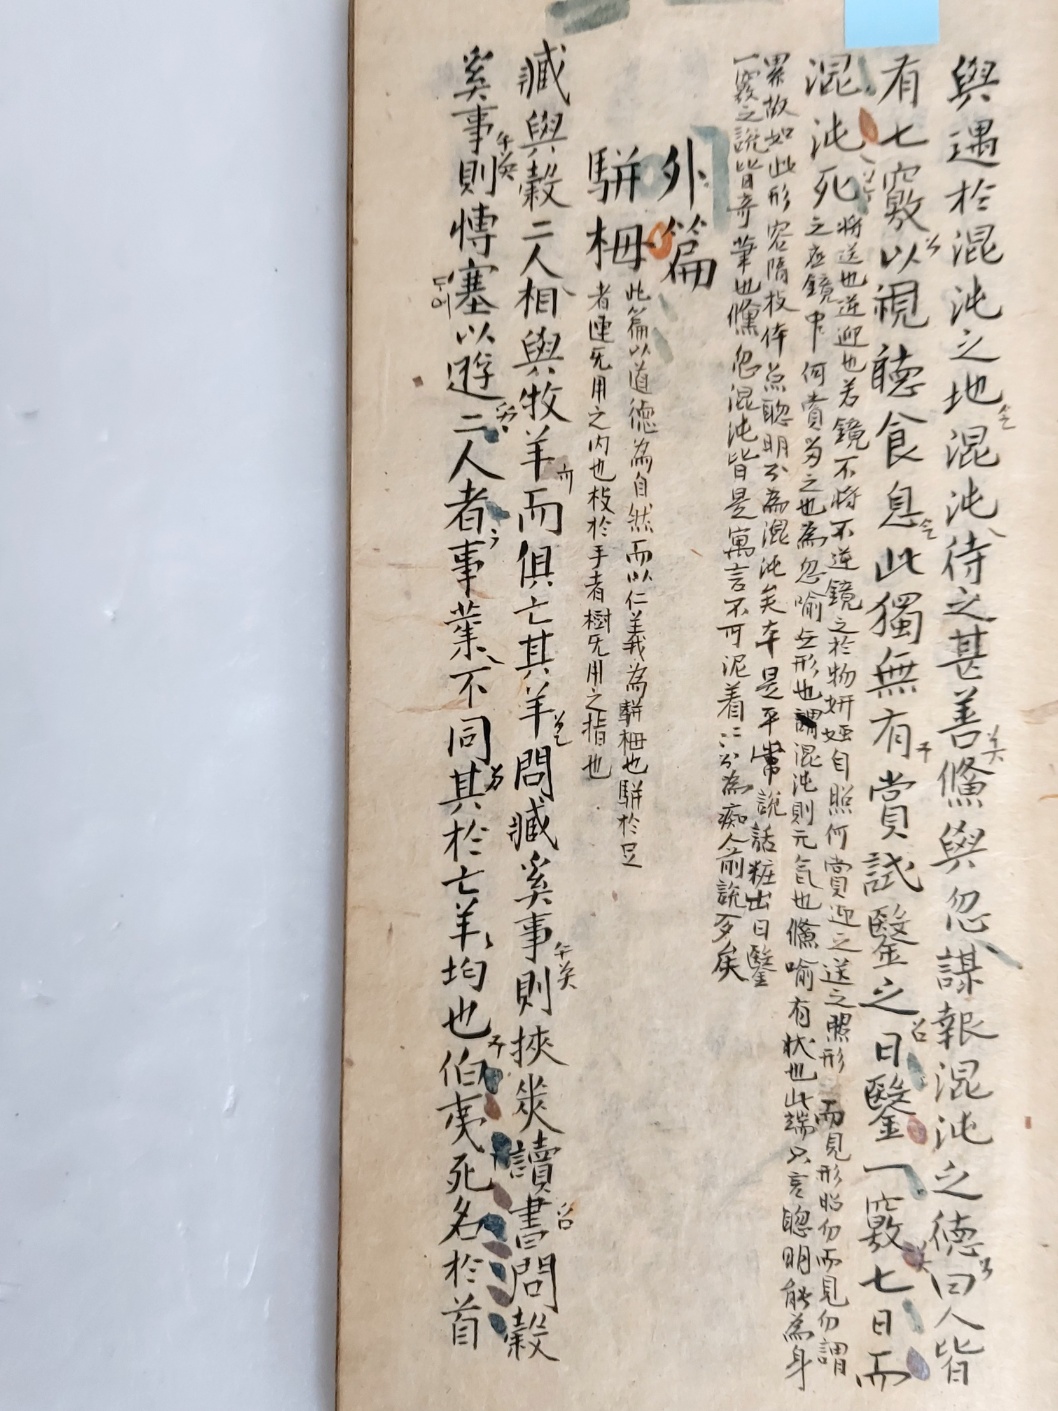 與遇於混沌之地混沌待之甚善鯈與忽謀報混沌之德曰人皆
有七竅以視聽食息此獨無有嘗試鑿之日鑿一竅七日而
混沌死
將送也逆迎也若鏡不將不逆鏡之於物妍媸自照何嘗迎之送之照形而見形照勿而見勿謂
之在鏡中何嘗為之也為忽喻无形也謂混沌則元氣也鯈喻有狀也此端只言聰明能為身
累故如此形容隋枝体黜聰明尒為混沌矣本是平常說話粧出日鑿
一竅之說皆奇筆也鯈忽混沌皆是寓言不可泥着
外篇
駢栂
此篇以道德為自然而以仁義為駢栂也駢於足
者連旡用之內也枝於手者樹旡用之指也
臧與穀二人相與牧羊而俱亡其羊問臧奚事則挾筴讀書問穀
奚事則愽塞以遊二人者事業不同其於亡羊均也伯夷死名於首